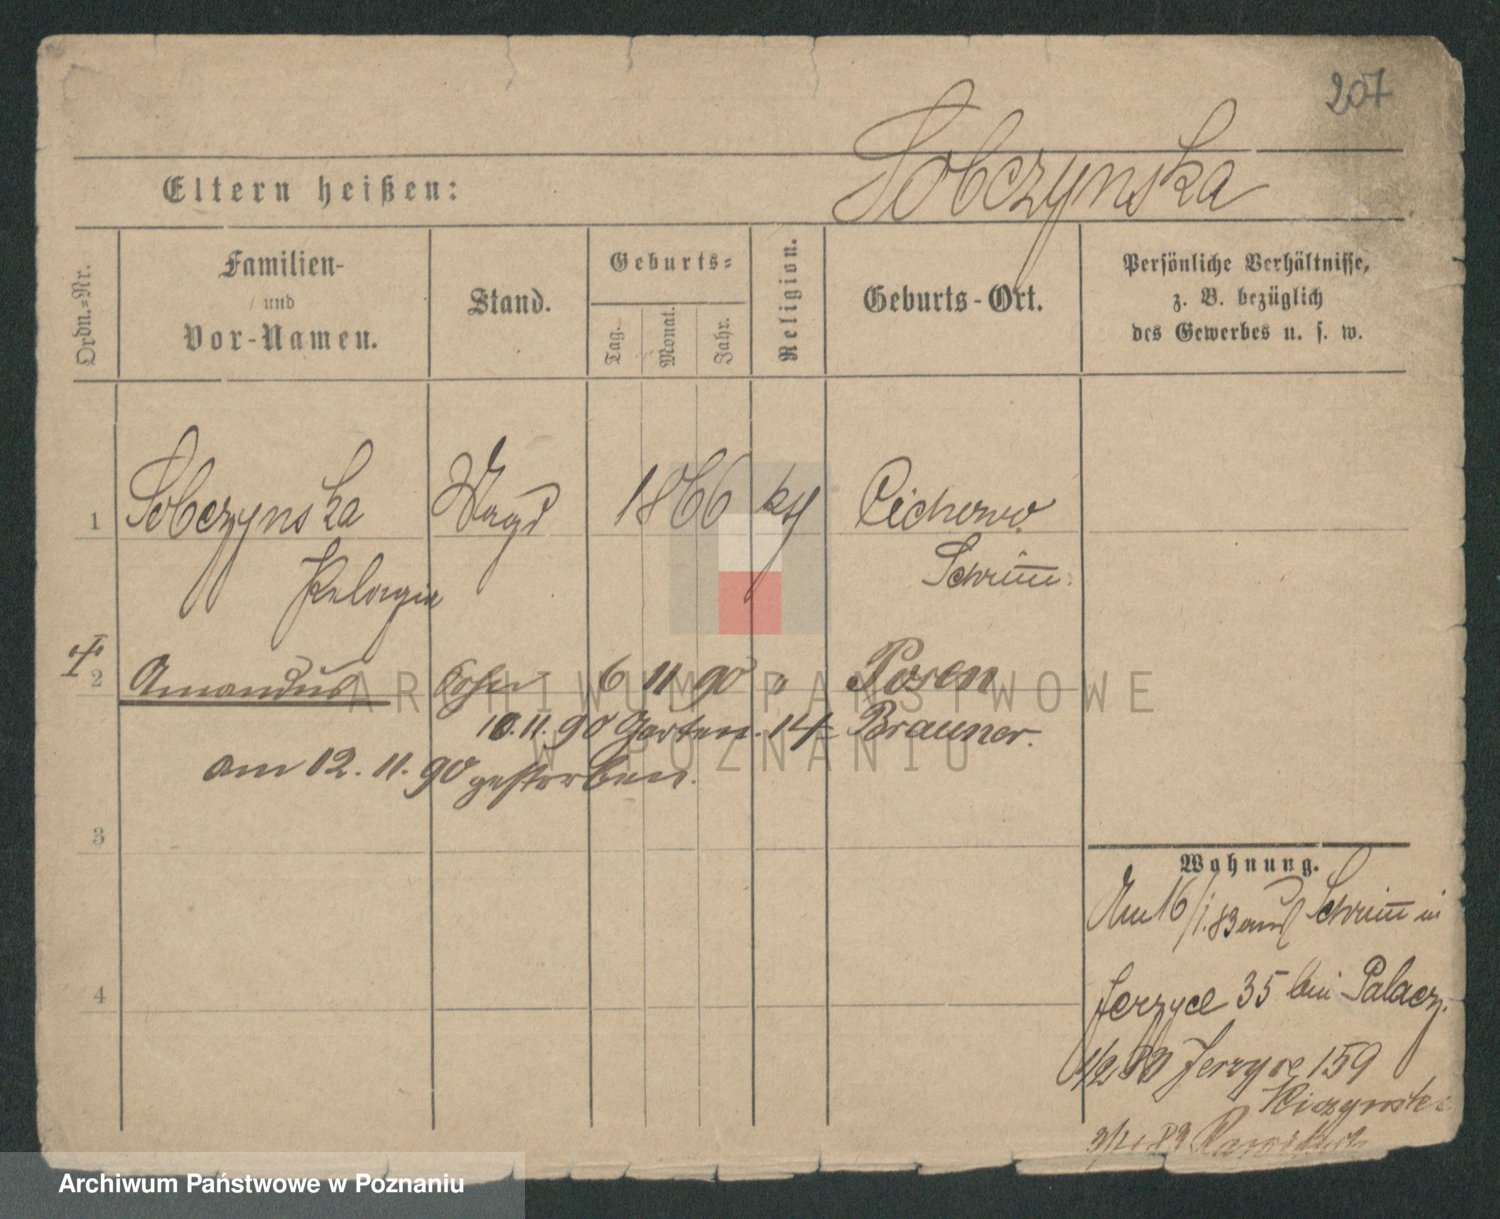 207
Sobczynska
Eltern heißen:
Ordn.-Nr.
Familien-
und
Vor-Namen.
Stand.
Geburts-
Tag.
Monat.
Jahr.
Religion.
Geburts-Ort.
Persönliche Verhältnisse,
z. B. bezüglich
des Gewerbes u. s. w.
1 Sobczynska Magd 1866 kth Cichowo
Pelagia Schrimm
2 Amandus Sohn 6 11 90 " Posen
10. 11. 90 Garten 14 Brauner.
am 12. 11. 90 gestorben.
3
4
Wohnung.
Am 16/1. 83 aus Schrimm in
Jerzyce 35 bei Palacz.
1/2 83 Jerzyce 159
ARCHIWUM PAŃSTWOWE
W POZNANIU
Archiwum Państwowe w Poznaniu